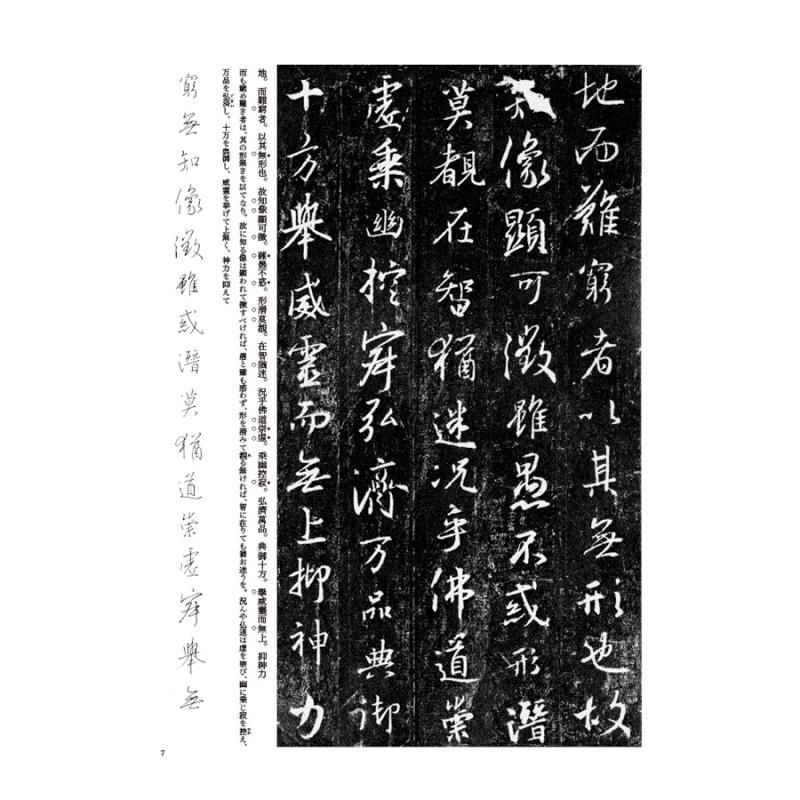 地而難窮者以其無形也故
知像顯可徵雖愚不惑形潛
莫覩在智猶迷況乎佛道崇
虛乗幽控寂弘濟万品典御
十方舉威靈而無上抑神力
地。而難窮者。以其無形也。故知像顯可徵。雖愚不惑。形潛莫覩。在智猶迷。況乎佛道崇虛。乗幽控寂。弘濟萬品。典御十方。擧威靈而無上。抑神力
而も窮め難き者は、其の形無きを以てなり。故に知る像は顯われて徵すべければ、愚と雖も惑わず、形を潛みて覩る無ければ、智に在りても猶お迷うを。況んや仏道は虛を崇び、幽に乗じ寂を控え、
万品を弘済し、十方を典御し、威靈を挙げて上無く、神力を抑えて
窮無知像徵雖惑潛莫猶道崇虛寂舉無
7